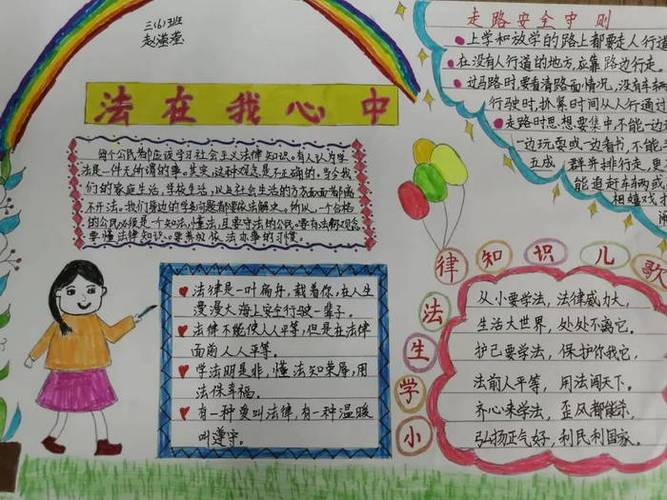 三(6)班
赵滢莹
法在我心中
每个公民都应该学习社会主义法律知识。有人认为学
法是一件无所谓的事。其实,这种观点是不正确的。当今我
们的家庭生活,学校生活,以及社会生活的方方面面都离
不开法。我们身边的许多问题都要依法解决。所以,一个合格
的公民必须是一个知法,懂法,且要守法的公民。要有法制观念
要懂法律知识。要养成依法办事的习惯。
走路安全守则
上学和放学的路上都要走人行道
在没有人行道的地方,应靠路边行走。
过马路时,要看清路面情况,没有车辆
行驶时,抓紧时间从人行通过
走路时思想要集中不能一边
一边玩耍或一边看书,不能三
五成群并排行走,更
能追赶车辆或
相嬉戏打
律知识儿歌
法生学小
♥法律是一叶扁舟,载着你,在人生
漫漫大海上安全行驶一辈子。
♥法律不能使人人平等,但是在法律
面前人人平等。
♥学法明是非,懂法知荣辱,用
法保幸福。
♥有一种爱叫法律,有一种温暖
叫遵守。
从小要学法,法律威力大,
生活大世界,处处不离它。
护己要学法,保护你我它。
法前人平等,用法闯天下。
齐心来学法,歪风都能杀,
弘扬正气好,利民利国家。